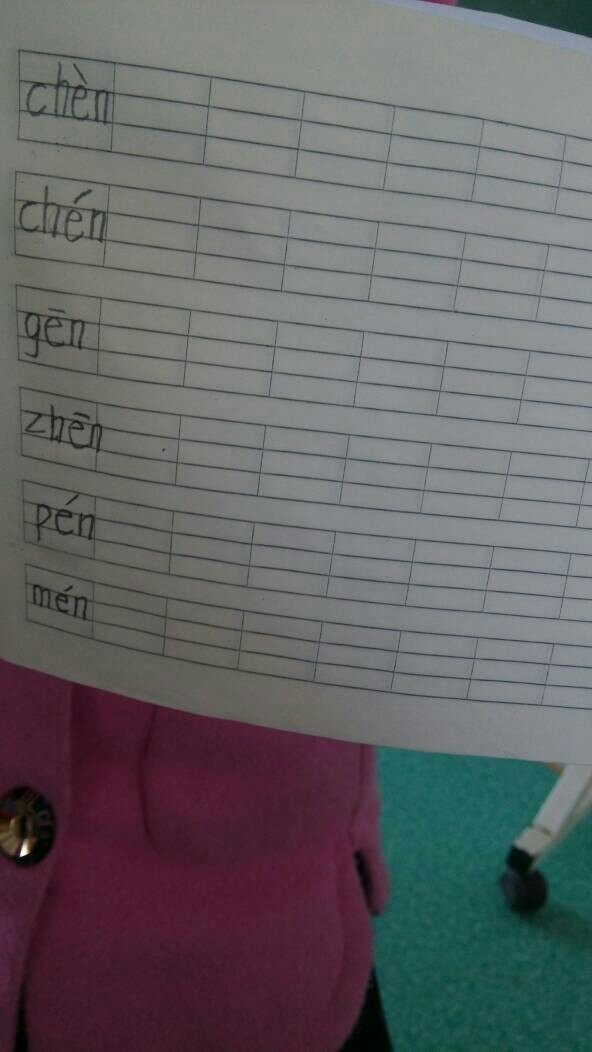 chèn
chén
gēn
zhēn
pén
mén